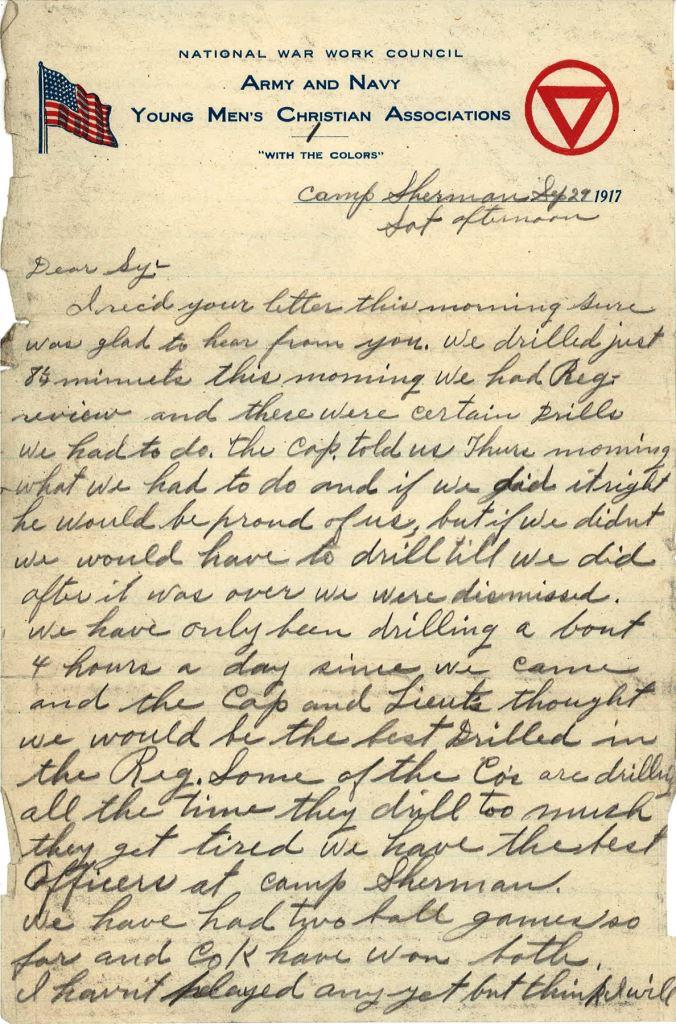 NATIONAL WAR WORK COUNCIL
ARMY AND NAVY
YOUNG MEN'S CHRISTIAN ASSOCIATIONS
1
"WITH THE COLORS"
Camp Sherman Sep 29 1917
Sat afternoon
Dear Sy:-
I rec'd your letter this morning sure
was glad to hear from you. We drilled just
8½ minuets this morning we had Reg.
review and there were certain Drills
we had to do. The Cap. told us Thurs morning
what we had to do and if we did it right
he would be proud of us, but if we didnt
we would have to drill till we did
after it was over we were dismissed.
We have only been drilling a bout
4 hours a day since we came
and the Cap and Lieuts thought
we would be the best Drilled in
the Reg. Some of the Co's are drilling
all the time they drill too much
they get tired we have the best
Officers at Camp Sherman.
We have had two ball games so
far and Co K have won both.
I havn't played any yet but think I will